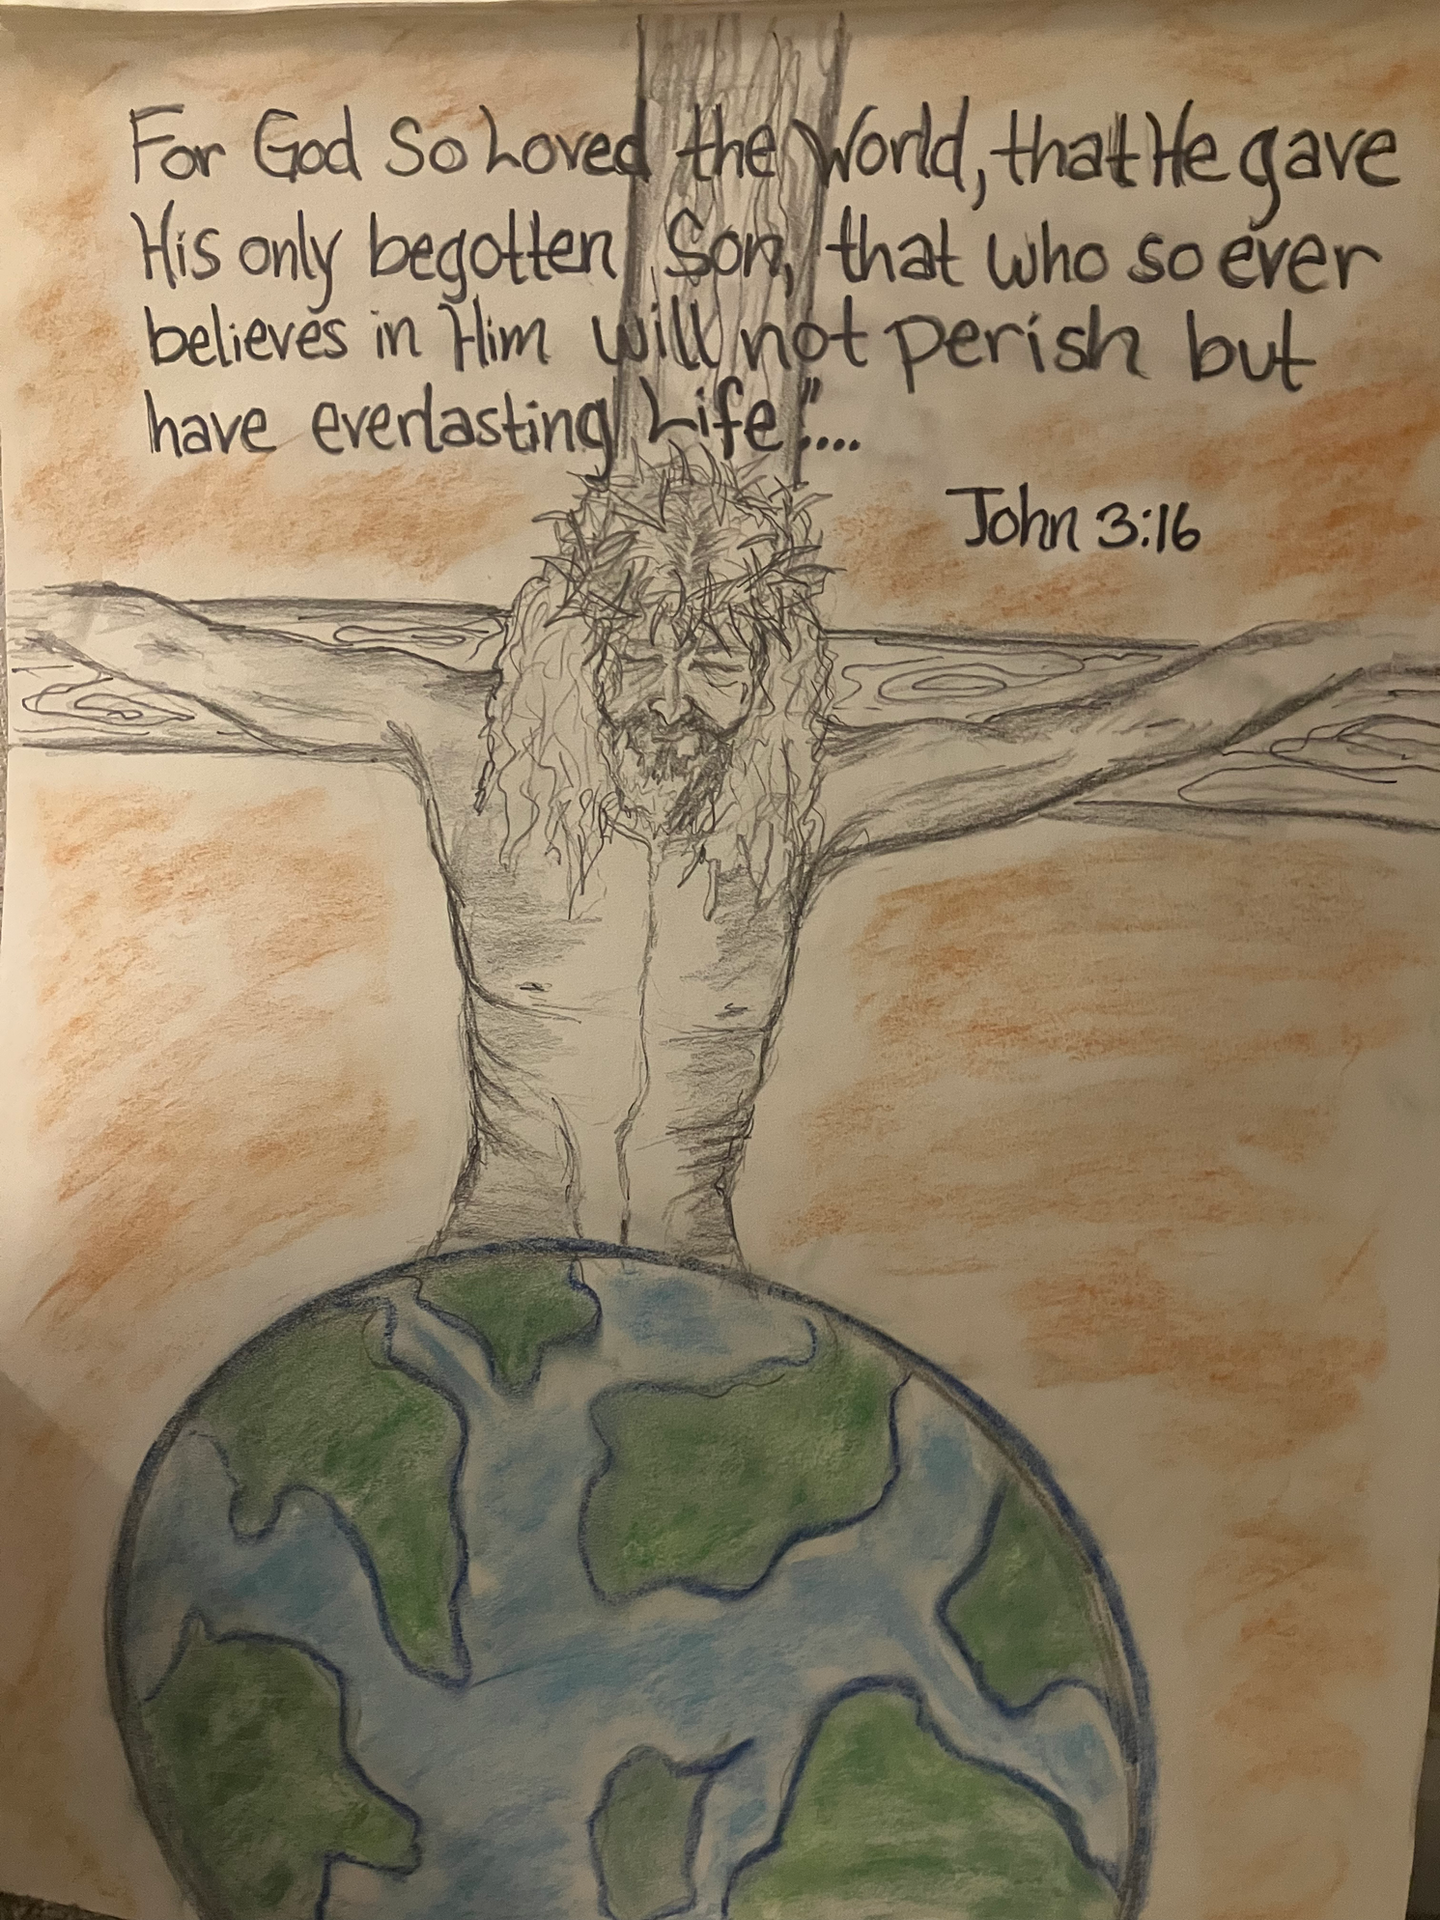 For God So Loved the World, that He gave
His only begotten Son, that who so ever
believes in Him will not perish but
have everlasting Life"....
John 3:16